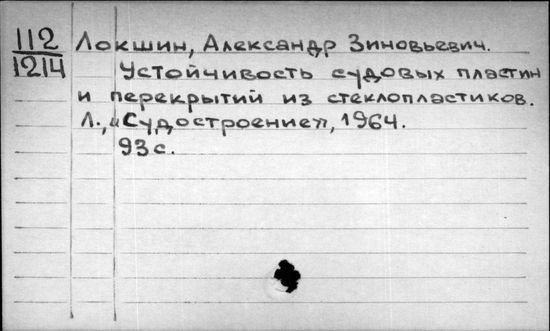 112 Локшин, Александр Зиновьевич.
1214 Устойчивость судовых пластин
и перекрытий из стеклопластиков.
Л., „Судостроение", 1964.
93 с.